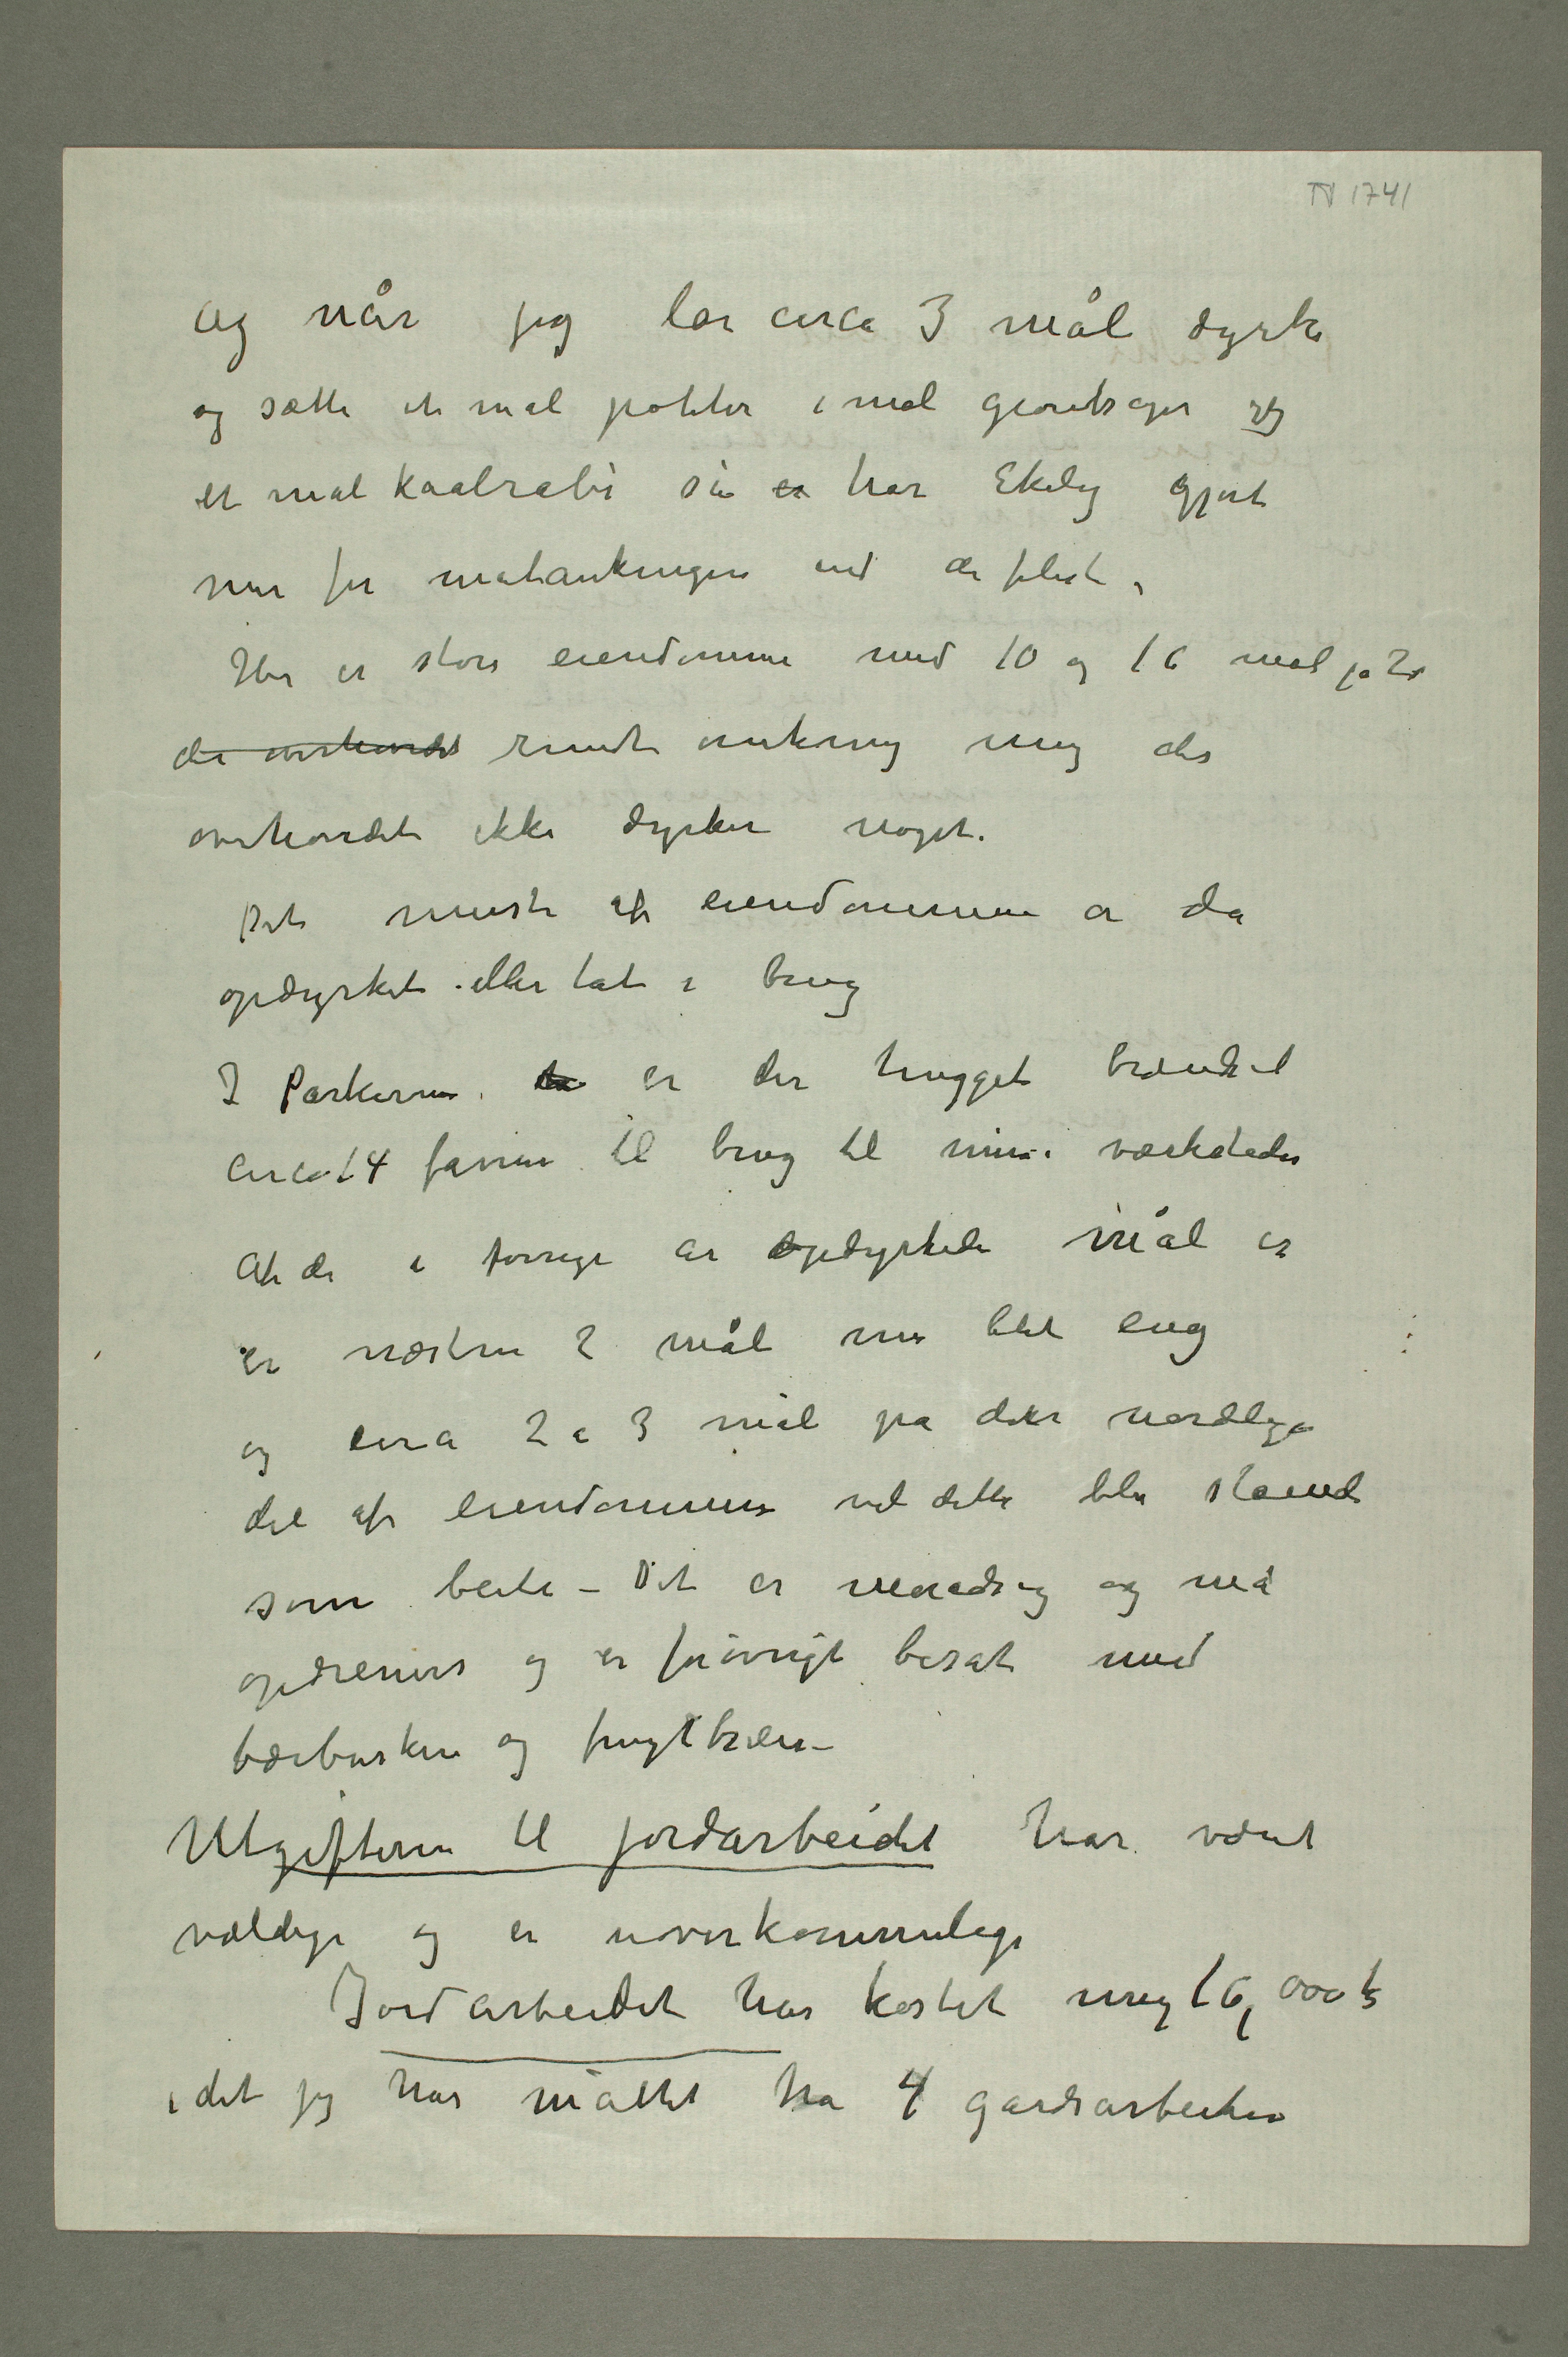 N 1741
og når jeg lar circa 3 mål dyrke
og sætte et mål poteter 1 mål grøntsager og
et mål kaalrabi så er har Ekely gjort
mer for mataukingen end de fleste,
Her er store eiendomme med 10 og 16 mål ja 20
der overhovedet rundt omkring mig der
overhovedet ikke dyrker noget.
Det meste af eiendommen er da
opdyrket eller tat i brug
I Parkerne er der hugget brændsel
circa 14 favner til brug til mine værksteder
Af de i forrige år opdyrkede mål er
er næsten 2 mål nu blet eng
og circa 2 a 3 mål på den nordlige
del af eiendommen vil dette bli stående
som beite – Det er moradsig og må
opdreneres og er forøvrigt besat med
bærbusker og frugttrær –
Utgifterne til jordarbeidet har været
vældige og er uoverkommelige
Jordarbeidet har kostet mig 16,000 kr
idet jeg har måttet ha 4 gårdsarbeider